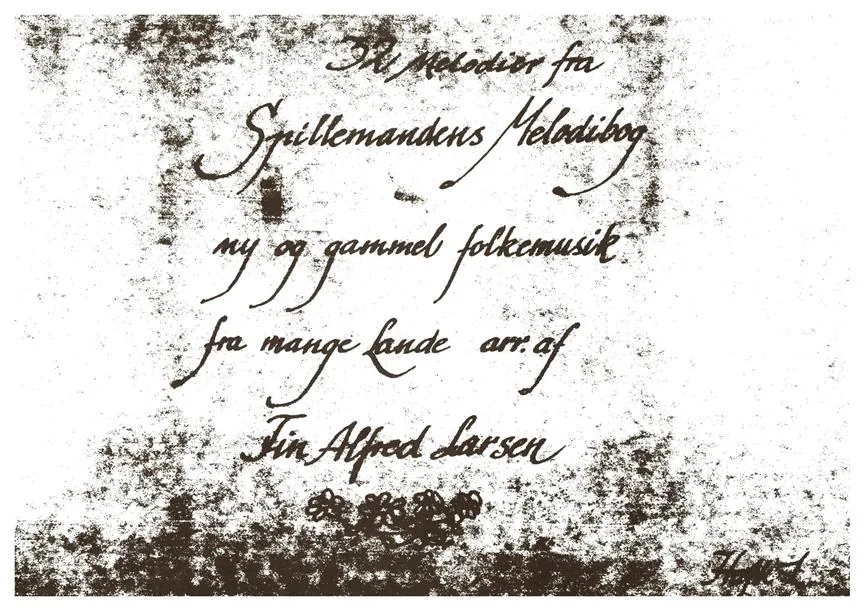 32 Melodier fra
Spillemandens Melodibog
ny og gammel folkemusik
fra mange Lande arr. af
Fin Alfred Larsen
Hæfte 1.